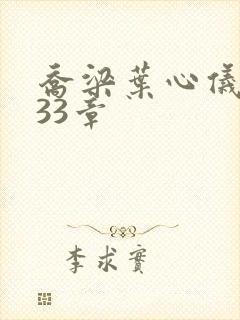 乔梁葉心儀
33章
李求實